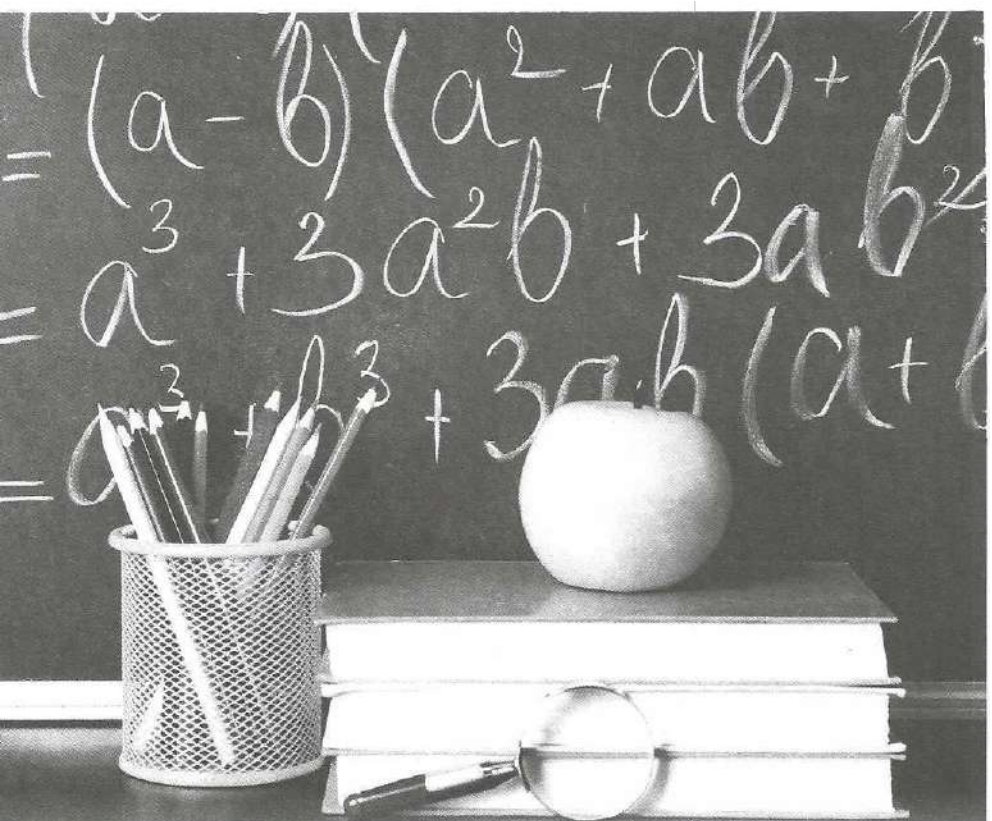 = (a - b) (a² + ab + b
= a³ + 3a²b + 3ab²
= a³ + b³ + 3ab (a +